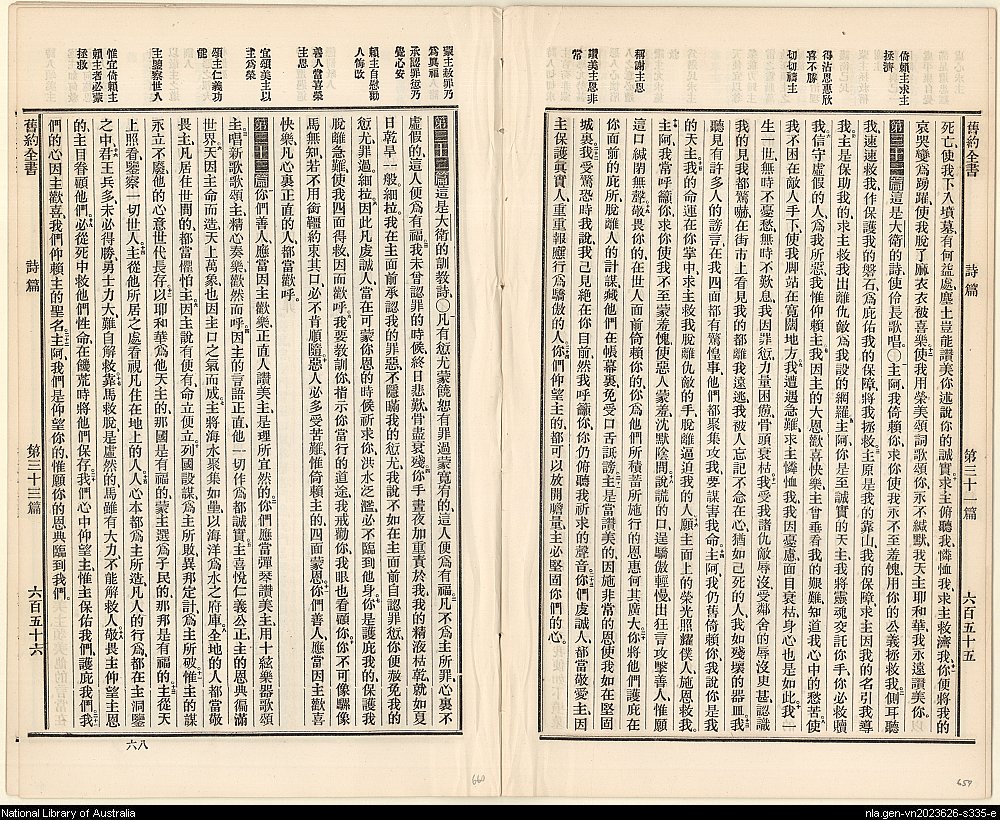 舊約全書 詩篇 第三十一篇 六百五十五
倚賴主求主
拯濟
得沾恩惠欣
喜不勝
切切禱主
稱謝主恩
讚美主恩非
常
死亡使我下入墳墓有何益處塵土豈能讚美你述說你的誠實求主俯聽我憐恤我求主救濟我你便將我的
哀哭變為踴躍使我脫了麻衣衣被喜樂使我用榮美頌詞歌頌你永不緘默我天主耶和華我永遠讚美你
第三十一篇這是大衛的詩使伶長歌唱〇主阿我倚賴你求你使我永不至羞愧用你的公義拯救我側耳聽
我速速救我作保護我的磐石為庇佑我的保障將我拯救主原是我的靠山我的保障求主因我的名引我導
我主是保助我的求主救我出離仇敵為我設的網羅主阿你是至誠實的天主我將靈魂交託你手你必救贖
我信守虛假的人為我所惡我惟仰賴主我因主的大恩歡喜快樂主曾垂看我的艱難知道我心中的愁苦使
我不困在敵人手下使我腳站在寬闊地方我遭遇急難求主憐恤我我因憂慮面目衰枯身心也是如此我一
生一世無時不憂愁無時不歎息我因罪愆力量困憊骨頭衰枯我受我諸仇敵辱沒受鄰舍的辱沒更甚認識
我的見我都驚嚇在街市上看見我的都離我遠逃我被人忘記不念在心猶如已死的人我如殘壞的器皿我
聽見有許多人的謗言在我四面都有驚惶事他們都聚集攻我要謀害我命主阿我仍舊倚賴你我說你是我
的天主我的命運在你掌中求主救我脫離仇敵的手脫離逼迫我的人願主面上的榮光照耀僕人施恩救我
主阿我常呼籲你求你使我不至蒙羞愧使惡人蒙羞沈默陰間說謊的口逞驕傲輕慢出狂言攻擊善人惟願
這口緘閉無聲敬畏你的在世人面前倚賴你的你為他們所積蓄所施行的恩惠何其廣大你將他們護庇在
你面前的庇所脫離人的計謀藏他們在帳幕裏免受口舌訛謗主是當讚美的因施非常的恩使我如在堅固
城裏我受驚恐時我說我已見絕在你目前然我呼籲你你仍俯聽我祈求的聲音你們虔誠人都當敬愛主因
主保護眞實人重重報應行為驕傲的人你們仰望主的都可以放開膽量主必堅固你們的心
舊約全書 詩篇 第三十三篇 六百五十六
蒙主赦罪乃
為眞福
承認罪愆乃
覺心安
賴主自慰勸
人悔改
善人當喜樂
主恩
宜頌美主以
主為榮
頌主仁義功
能
主鑒察世人
惟宜倚賴主
賴主者必蒙
拯救
第三十二篇這是大衛的訓教詩〇凡有愆尤蒙饒恕有罪過蒙寬宥的這人便為有福凡不為主所罪心裏不
虛假的這人便為有福我未曾認罪的時候終日悲歎骨盡衰殘你手晝夜加重責於我我的精液枯乾就如夏
日乾旱一般細拉我在主面前承認我的罪惡不隱瞞我的愆尤我說不如在主面前自認罪愆你便赦免我的
愆尤罪過細拉因此凡虔誠人當在可蒙你恩的時候祈求你洪水泛濫必不臨到他身你是護庇我的保護我
脫離急難使我四面得救因而歡呼我要教訓你指示你當行的道途我戒勸你我眼也看顧你你不可像騾像
馬無知若不用銜韁約束其口必不肯順隨惡人必多受苦難惟倚賴主的四面蒙恩你們善人應當因主歡喜
快樂凡心裏正直的人都當歡呼
第三十三篇你們善人應當因主歡樂正直人讚美主是理所宜然的你們應當彈琴讚美主用十絃樂器歌頌
主唱新歌歌頌主精心奏樂歡然而呼因主的言語正直他一切作為都誠實主喜悅仁義公正主的恩典徧滿
世界天因主命而造天上萬象也因主口之氣而成主將海水聚集如壘以海洋為水之府庫全地的人都當敬
畏主凡居住世間的都當懼怕主因主說有便有命立便立列國設謀為主所敗異邦定計為主所破惟主的謀
永立不廢他的心意世代長存以耶和華為他天主的那國是有福的蒙主選為子民的那邦是有福的主從天
上照看鑒察一切世人主從他所居之處看視凡住在地上的人人心本都為主所造凡人的行為都在主洞鑒
之中君王兵多未必得勝勇士力大難自解救靠馬救脫是虛然的馬雖有大力不能解救人敬畏主仰望主恩
的主目眷顧他們必從死中救他們性命在饑荒時將他們保存我們心中仰望主惟主保佑我們護庇我們我
們的心因主歡喜我們仰賴主的聖名主阿我們是仰望你的惟願你的恩典臨到我們
八六
660
659
National Library of Australia
nla.gen-vn2023626-s335-e